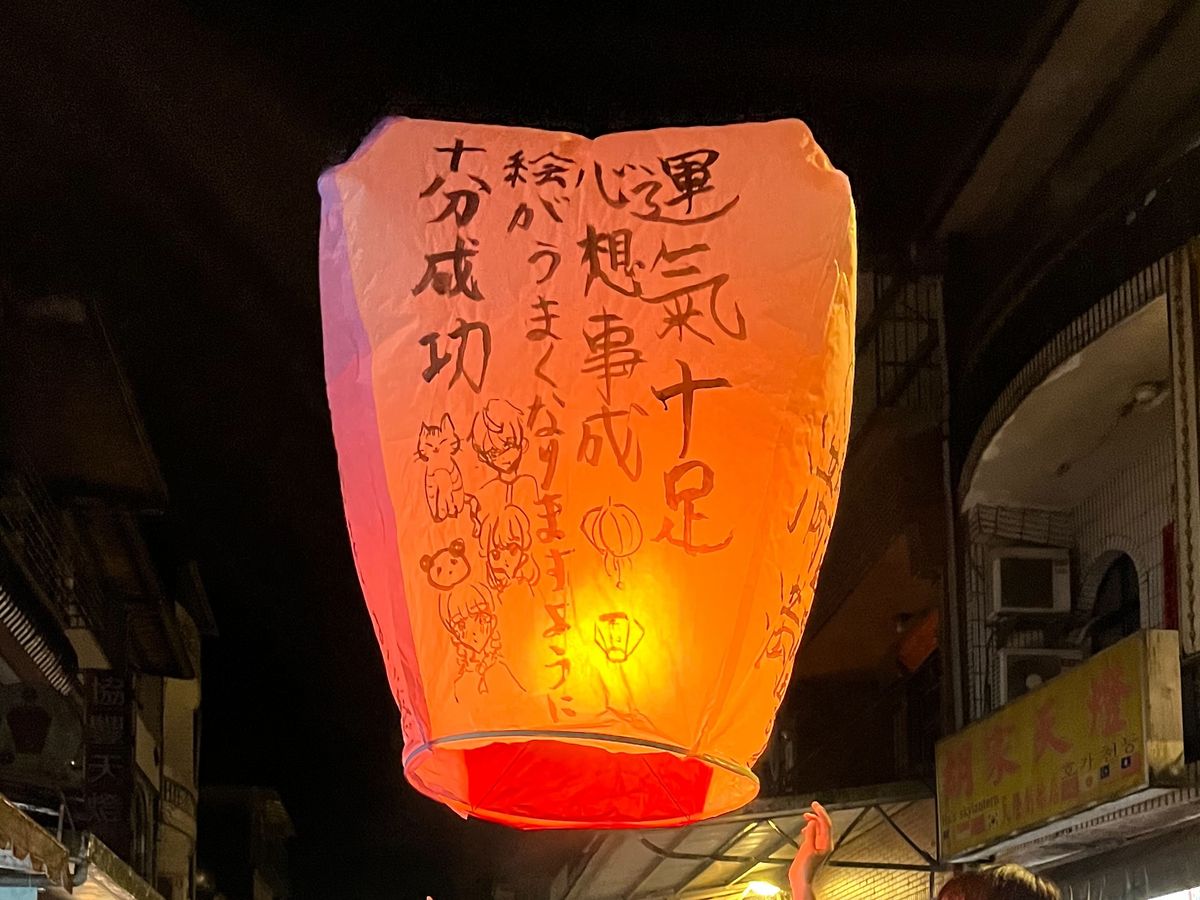 運氣十足
心想事成
絵がうまくなりますように
十分成功
胡家天燈
호가천등